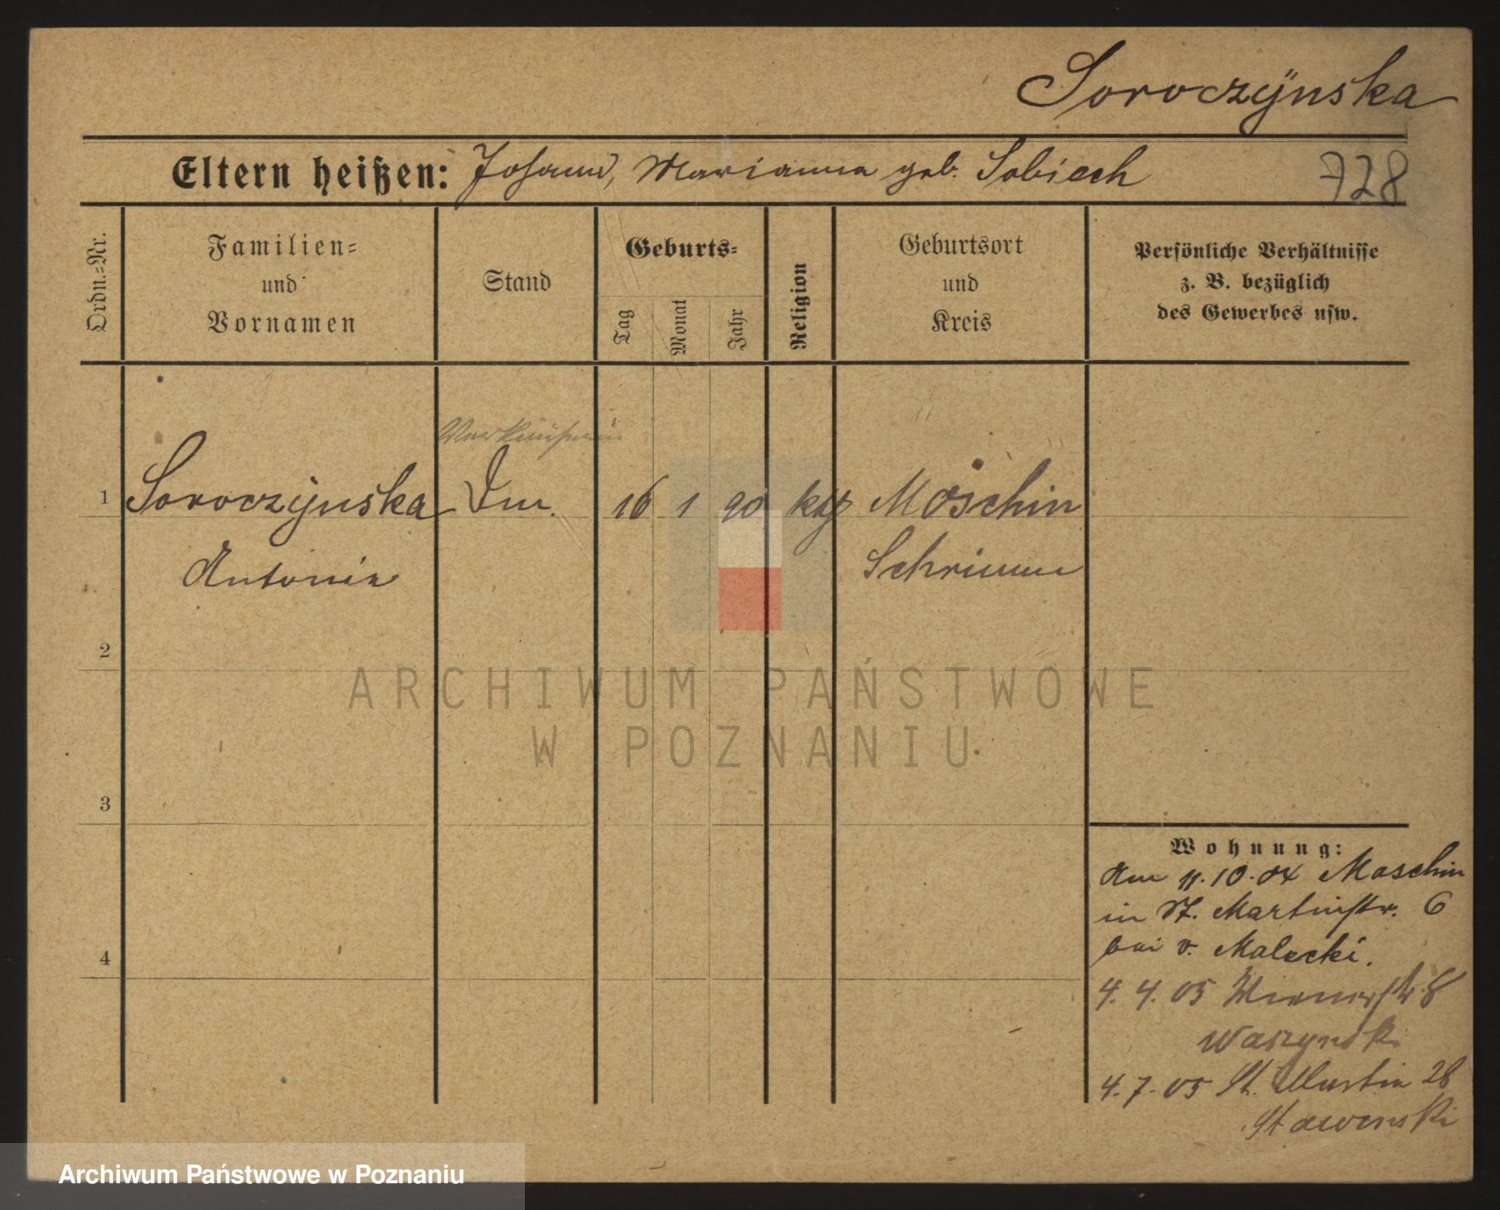 Soroczÿnska
Eltern heißen: Johann, Marianna geb. Sobiech
728
Ordn.=Nr.
Familien=
und
Vornamen
Stand
Geburts=
Tag
Monat
Jahr
Religion
Geburtsort
und
Kreis
Persönliche Verhältnisse
z. B. bezüglich
des Gewerbes usw.
Verkäuferin
1 Soroczÿnska Dm. 16 1 90 kth Moschin
Antonie Schrimm
2
3
4
ARCHIWUM PAŃSTWOWE
W POZNANIU
Wohnung:
Am 11.10.04 Moschin
in St. Martinstr. 6
bei v. Malecki.
4. 4. 05 Wienerstr. 8
Waszynski
4. 7. 05 St. Martin 28
Archiwum Państwowe w Poznaniu